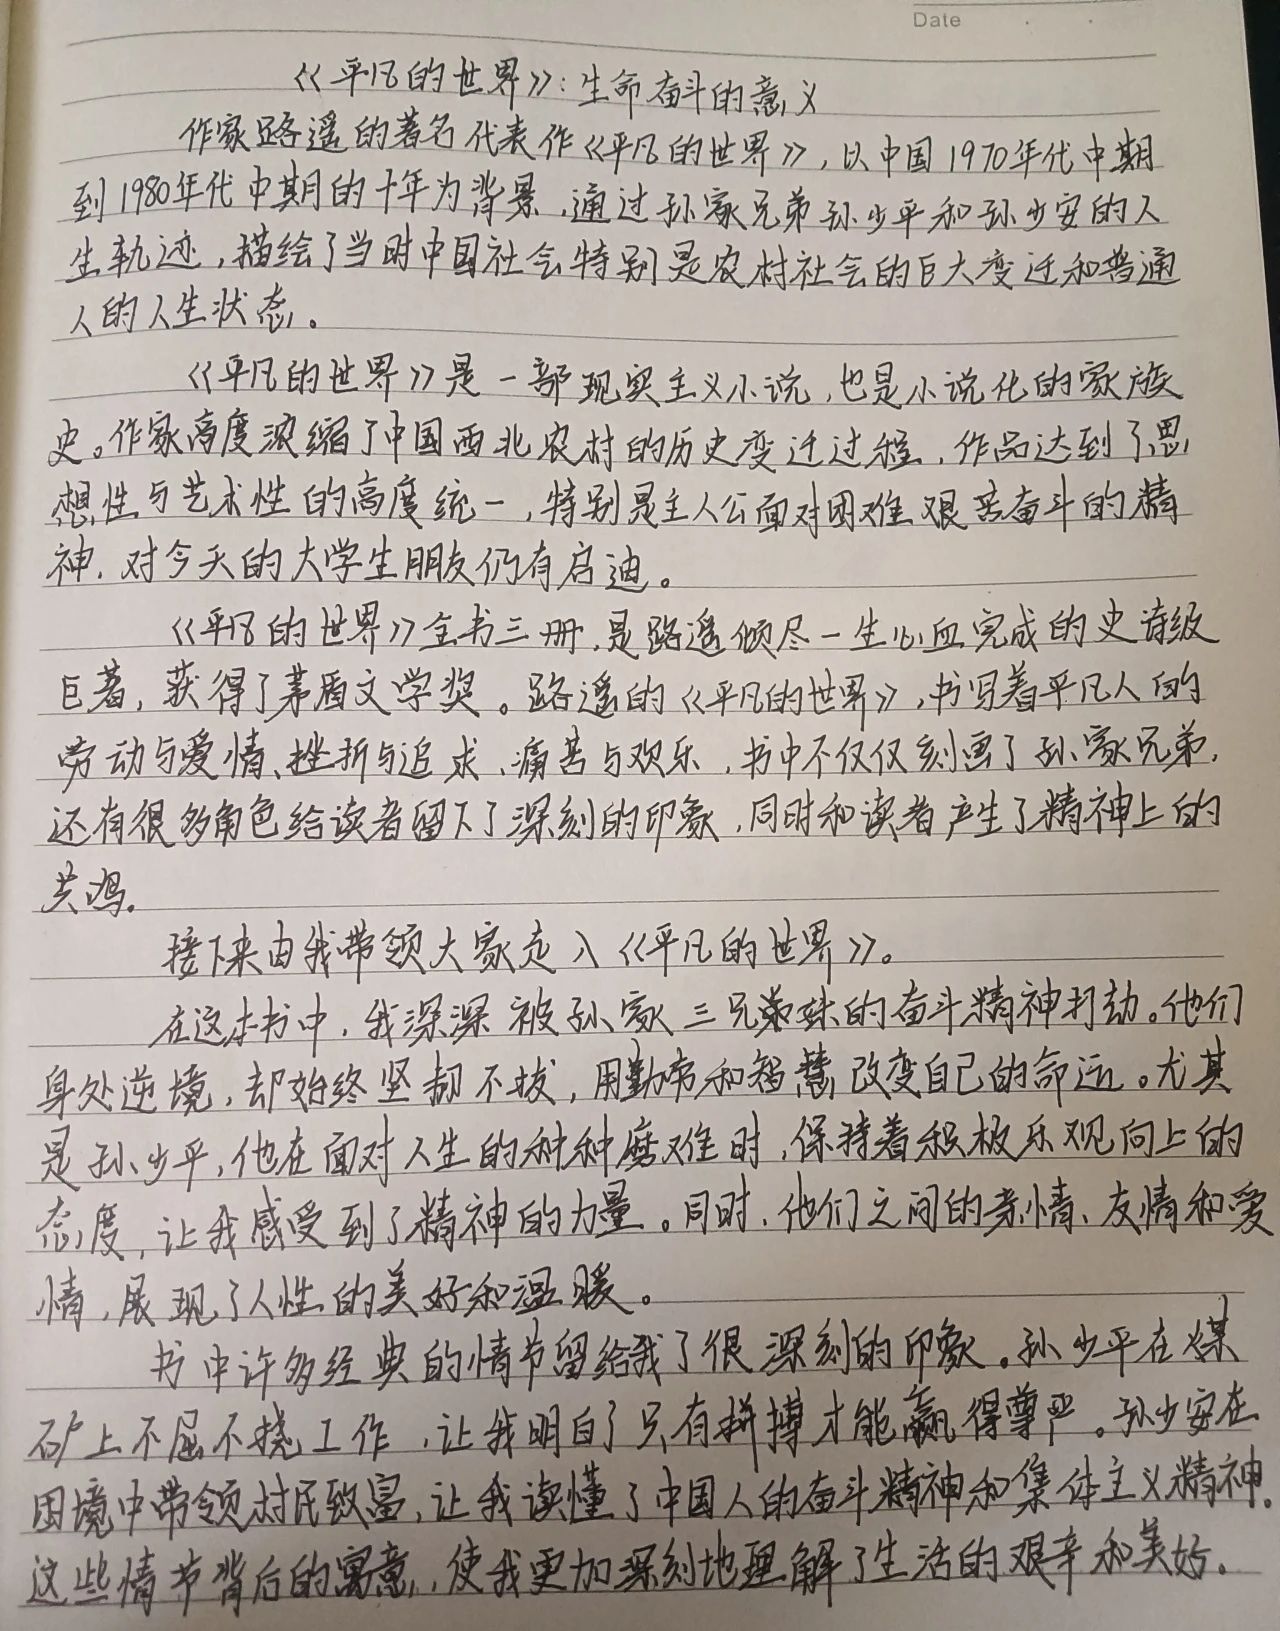 Date
《平凡的世界》：生命奋斗的意义
作家路遥的著名代表作《平凡的世界》，以中国1970年代中期
到1980年代中期的十年为背景，通过孙家兄弟孙少平和孙少安的人
生轨迹，描绘了当时中国社会特别是农村社会的巨大变迁和普通
人的人生状态。
《平凡的世界》是一部现实主义小说，也是小说化的家族
史。作家高度浓缩了中国西北农村的历史变迁过程，作品达到了思
想性与艺术性的高度统一，特别是主人公面对困难艰苦奋斗的精
神，对今天的大学生朋友仍有启迪。
《平凡的世界》全书三册，是路遥倾尽一生心血完成的史诗级
巨著，获得了茅盾文学奖。路遥的《平凡的世界》，书写着平凡人的
劳动与爱情、挫折与追求、痛苦与欢乐，书中不仅仅刻画了孙家兄弟，
还有很多角色给读者留下了深刻的印象，同时和读者产生了精神上的
共鸣。
接下来由我带领大家走入《平凡的世界》。
在这本书中，我深深被孙家三兄弟妹的奋斗精神打动。他们
身处逆境，却始终坚韧不拔，用勤劳和智慧改变自己的命运。尤其
是孙少平，他在面对人生的种种磨难时，保持着积极乐观向上的
态度，让我感受到了精神的力量。同时，他们之间的亲情、友情和爱
情，展现了人性的美好和温暖。
书中许多经典的情节留给我了很深刻的印象。孙少平在煤
矿上不屈不挠工作，让我明白了只有拼搏才能赢得尊严。孙少安在
困境中带领村民致富，让我读懂了中国人的奋斗精神和集体主义精神。
这些情节背后的寓意，使我更加深刻地理解了生活的艰辛和美好。